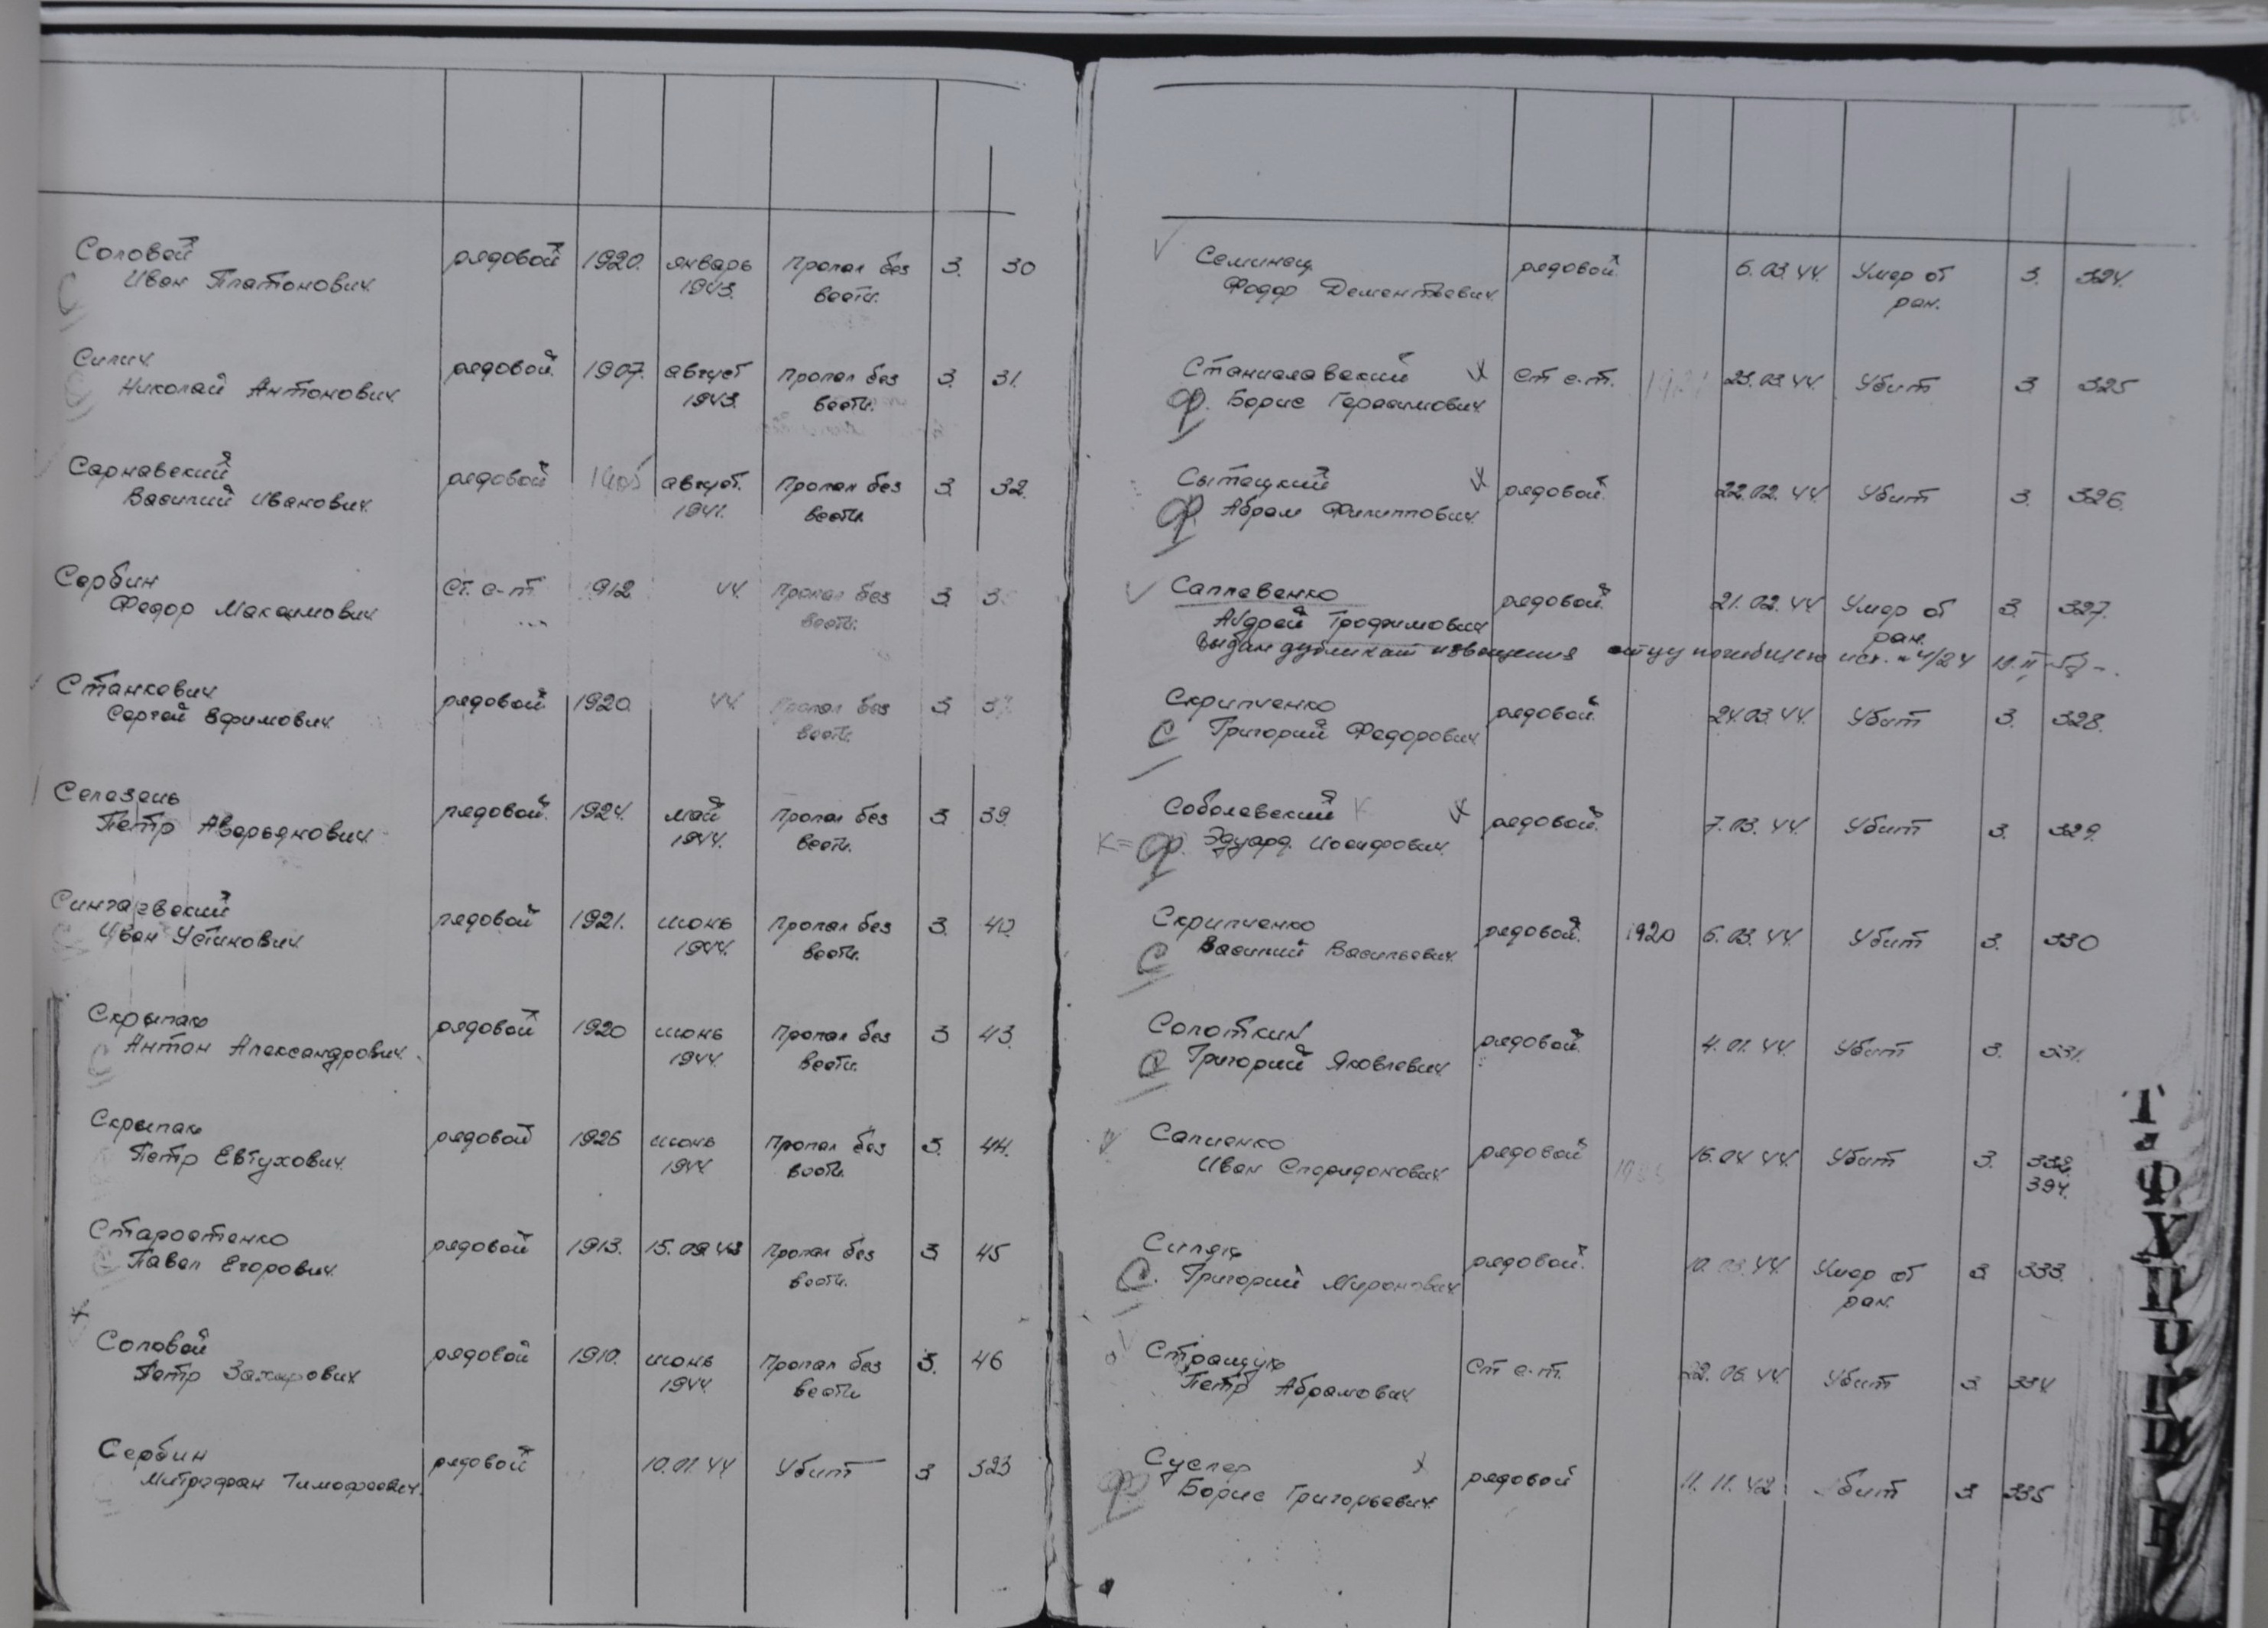 Соловей рядовой 1920. январь Пропал без 3. 30
Иван Платонович. 1943. вести.
Силич рядовой. 1907. август Пропал без 3. 31.
Николай Антонович 1943. вести.
Сарнавский рядовой август. Пропал без 3. 32.
Василий Иванович. 1941. вести.
Сербин Ст. с-т 1912 44. Пропал без 3.
Федор Максимович вести.
Станкевич рядовой 1920. 44. Пропал без 3
Сергей Ефимович. вести.
Селезень рядовой. 1924. май Пропал без 3 39.
Петр Аверьянович. 1944. вести.
Сингаевский рядовой 1921. июнь Пропал без 3. 40.
Иван Устинович. 1944. вести.
Скрыпак рядовой 1920 июнь Пропал без 3 43.
Антон Александрович. 1944. вести.
Скрыпак рядовой 1926 июнь Пропал без 3. 44.
Петр Евтухович. 1944 вести.
Старостенко рядовой 1913. 15.09.43 Пропал без 3 45
Павел Егорович. вести.
Соловей рядовой 1910. июнь Пропал без 3. 46
Петр Захарович 1944. вести
Сербин рядовой 10.01.44 Убит 3 323
Митрофан Тимофеевич.
Семинец рядовой. 6.03.44. Умер от 3. 324.
Федор Дементьевич. ран.
Станиславский ст с-т. 23.03.44. Убит 3 325
ф. Борис Герасимович.
Сытецкий рядовой. 22.02.44. Убит 3. 326.
ф. Абрам Филиппович.
Саплавенко рядовой. 21.02.44 Умер от 3. 327.
Андрей Трофимович ран.
Выдан дубликат извещения отцу погибшего исх. № 4/24
Скрипченко рядовой. 24.03.44. Убит 3. 328.
С Григорий Федорович.
Соболевский рядовой. 7.03.44. Убит 3. 329.
К= ф. Эдуард Иосифович.
Скрипченко рядовой. 1920 6.03.44. Убит 3. 330
С Василий Васильевич.
Солоткин рядовой. 4.01.44. Убит 3. 331.
С Григорий Яковлевич.
Сапиенко рядовой 16.04.44. Убит 3. 332,
Иван Спиридонович. 394.
Силяк рядовой. 10.03.44. Умер от 3 333.
С. Григорий Миронович. ран.
Стращук Ст с-т. 22.06.44. Убит 3 334
Петр Абрамович.
Суслер рядовой 11.11.42 Убит 3 335
ф. Борис Григорьевич.
Т
Ф
Х
Ц